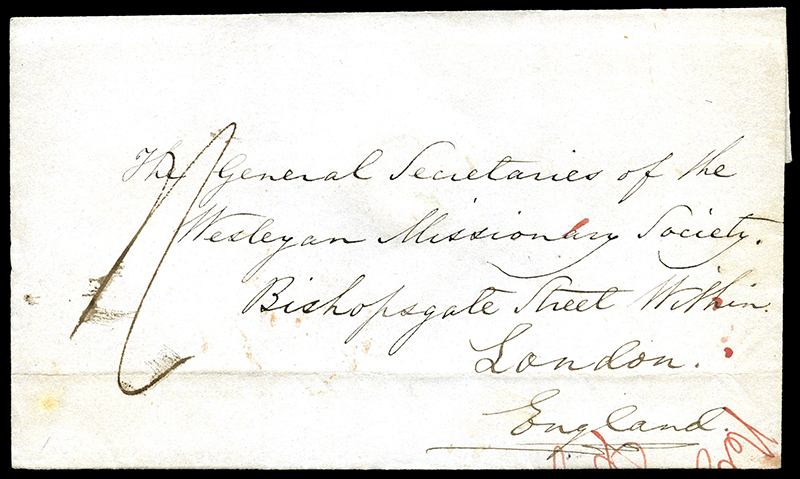 The General Secretaries of the
Wesleyan Missionary Society.
Bishopsgate Street Within.
London.
England.